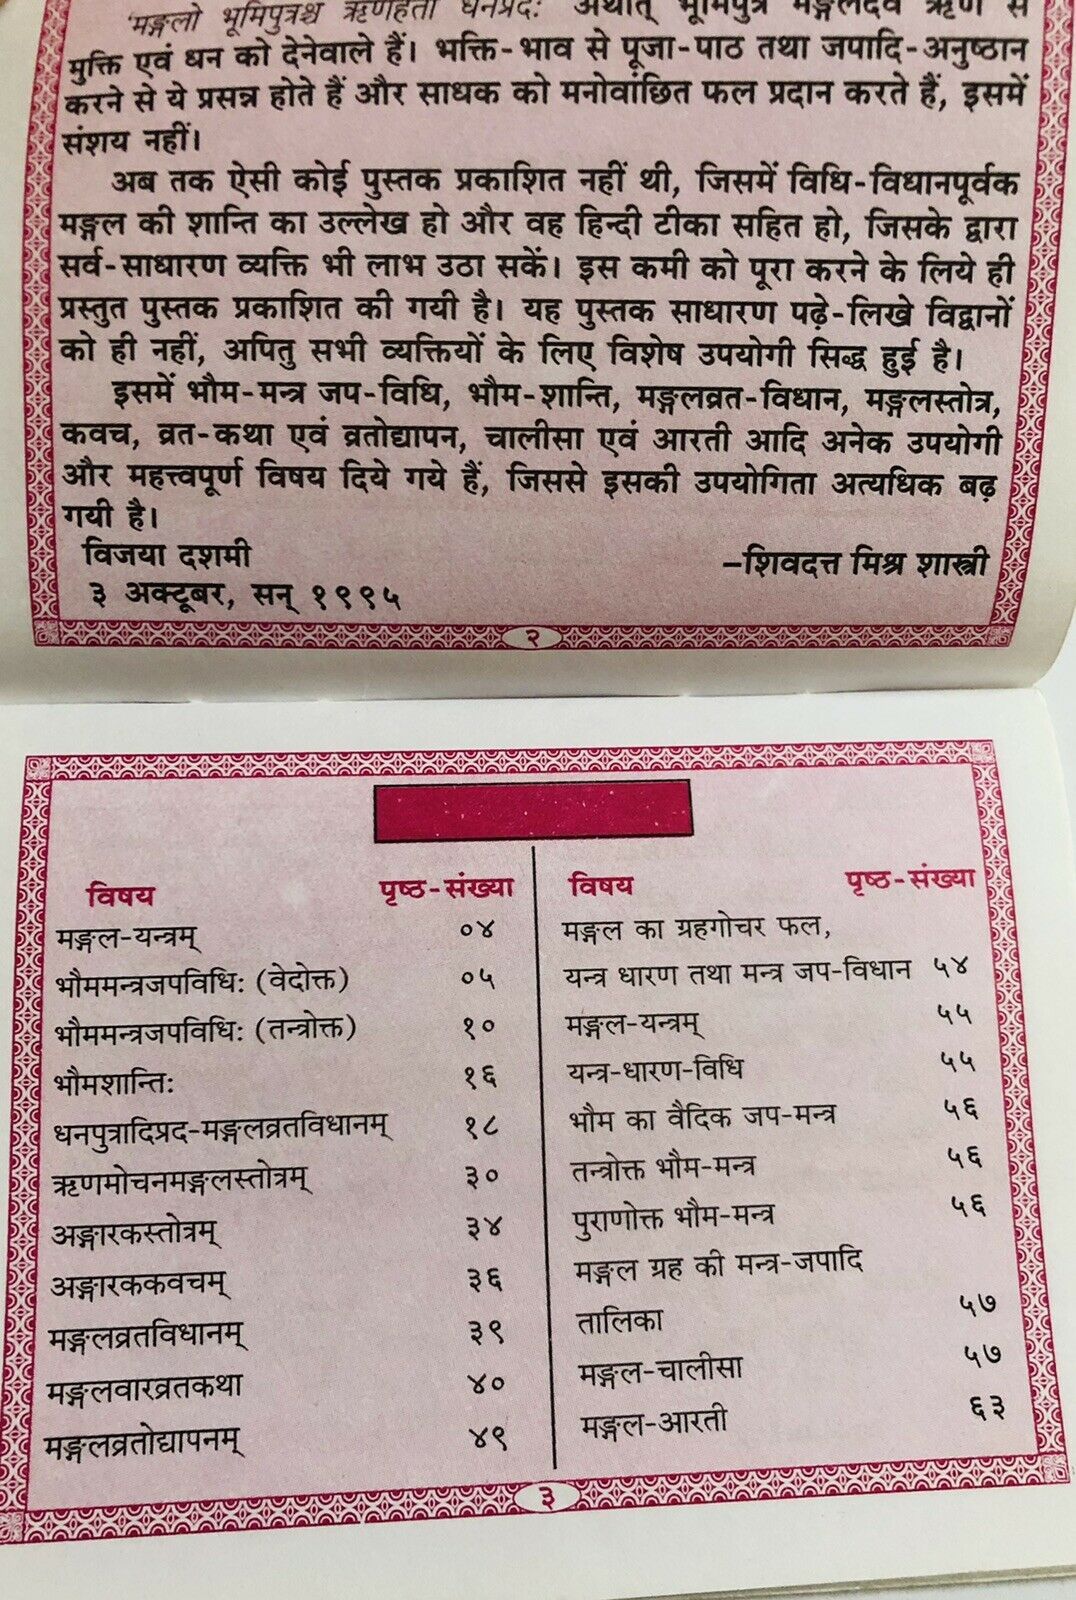 'मङ्गलो भूमिपुत्रश्च ऋणहर्ता धनप्रदः' अर्थात् भूमिपुत्र मङ्गलदेव ऋण से
मुक्ति एवं धन को देनेवाले हैं। भक्ति-भाव से पूजा-पाठ तथा जपादि-अनुष्ठान
करने से ये प्रसन्न होते हैं और साधक को मनोवांछित फल प्रदान करते हैं, इसमें
संशय नहीं।
अब तक ऐसी कोई पुस्तक प्रकाशित नहीं थी, जिसमें विधि-विधानपूर्वक
मङ्गल की शान्ति का उल्लेख हो और वह हिन्दी टीका सहित हो, जिसके द्वारा
सर्व-साधारण व्यक्ति भी लाभ उठा सकें। इस कमी को पूरा करने के लिये ही
प्रस्तुत पुस्तक प्रकाशित की गयी है। यह पुस्तक साधारण पढ़े-लिखे विद्वानों
को ही नहीं, अपितु सभी व्यक्तियों के लिए विशेष उपयोगी सिद्ध हुई है।
इसमें भौम-मन्त्र जप-विधि, भौम-शान्ति, मङ्गलव्रत-विधान, मङ्गलस्तोत्र,
कवच, व्रत-कथा एवं व्रतोद्यापन, चालीसा एवं आरती आदि अनेक उपयोगी
और महत्त्वपूर्ण विषय दिये गये हैं, जिससे इसकी उपयोगिता अत्यधिक बढ़
गयी है।
विजया दशमी
३ अक्टूबर, सन् १९९५
–शिवदत्त मिश्र शास्त्री
२
विषय पृष्ठ-संख्या
मङ्गल-यन्त्रम् ०४
भौममन्त्रजपविधिः (वेदोक्त) ०५
भौममन्त्रजपविधिः (तन्त्रोक्त) १०
भौमशान्तिः १६
धनपुत्रादिप्रद-मङ्गलव्रतविधानम् १८
ऋणमोचनमङ्गलस्तोत्रम् ३०
अङ्गारकस्तोत्रम् ३४
अङ्गारककवचम् ३६
मङ्गलव्रतविधानम् ३९
मङ्गलवारव्रतकथा ४०
मङ्गलव्रतोद्यापनम् ४९
विषय पृष्ठ-संख्या
मङ्गल का ग्रहगोचर फल,
यन्त्र धारण तथा मन्त्र जप-विधान ५४
मङ्गल-यन्त्रम् ५५
यन्त्र-धारण-विधि ५५
भौम का वैदिक जप-मन्त्र ५६
तन्त्रोक्त भौम-मन्त्र ५६
पुराणोक्त भौम-मन्त्र ५६
मङ्गल ग्रह की मन्त्र-जपादि
तालिका ५७
मङ्गल-चालीसा ५७
मङ्गल-आरती ६३
३